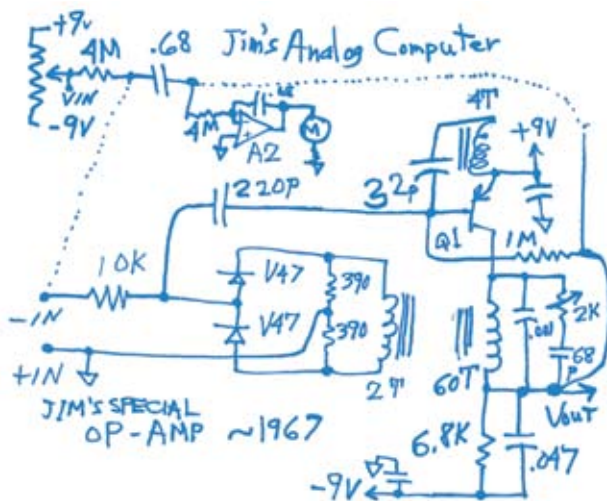 +9v
4M
.68
Jim's Analog Computer
VIN
-9V
4M
A2
M
4T
+9V
220P
32p
Q1
1M
10K
V47
390
-IN
V47
390
+IN
2T
60T
.001
2K
68
P
VOUT
JIM'S SPECIAL
OP-AMP ~1967
6.8K
.047
-9V